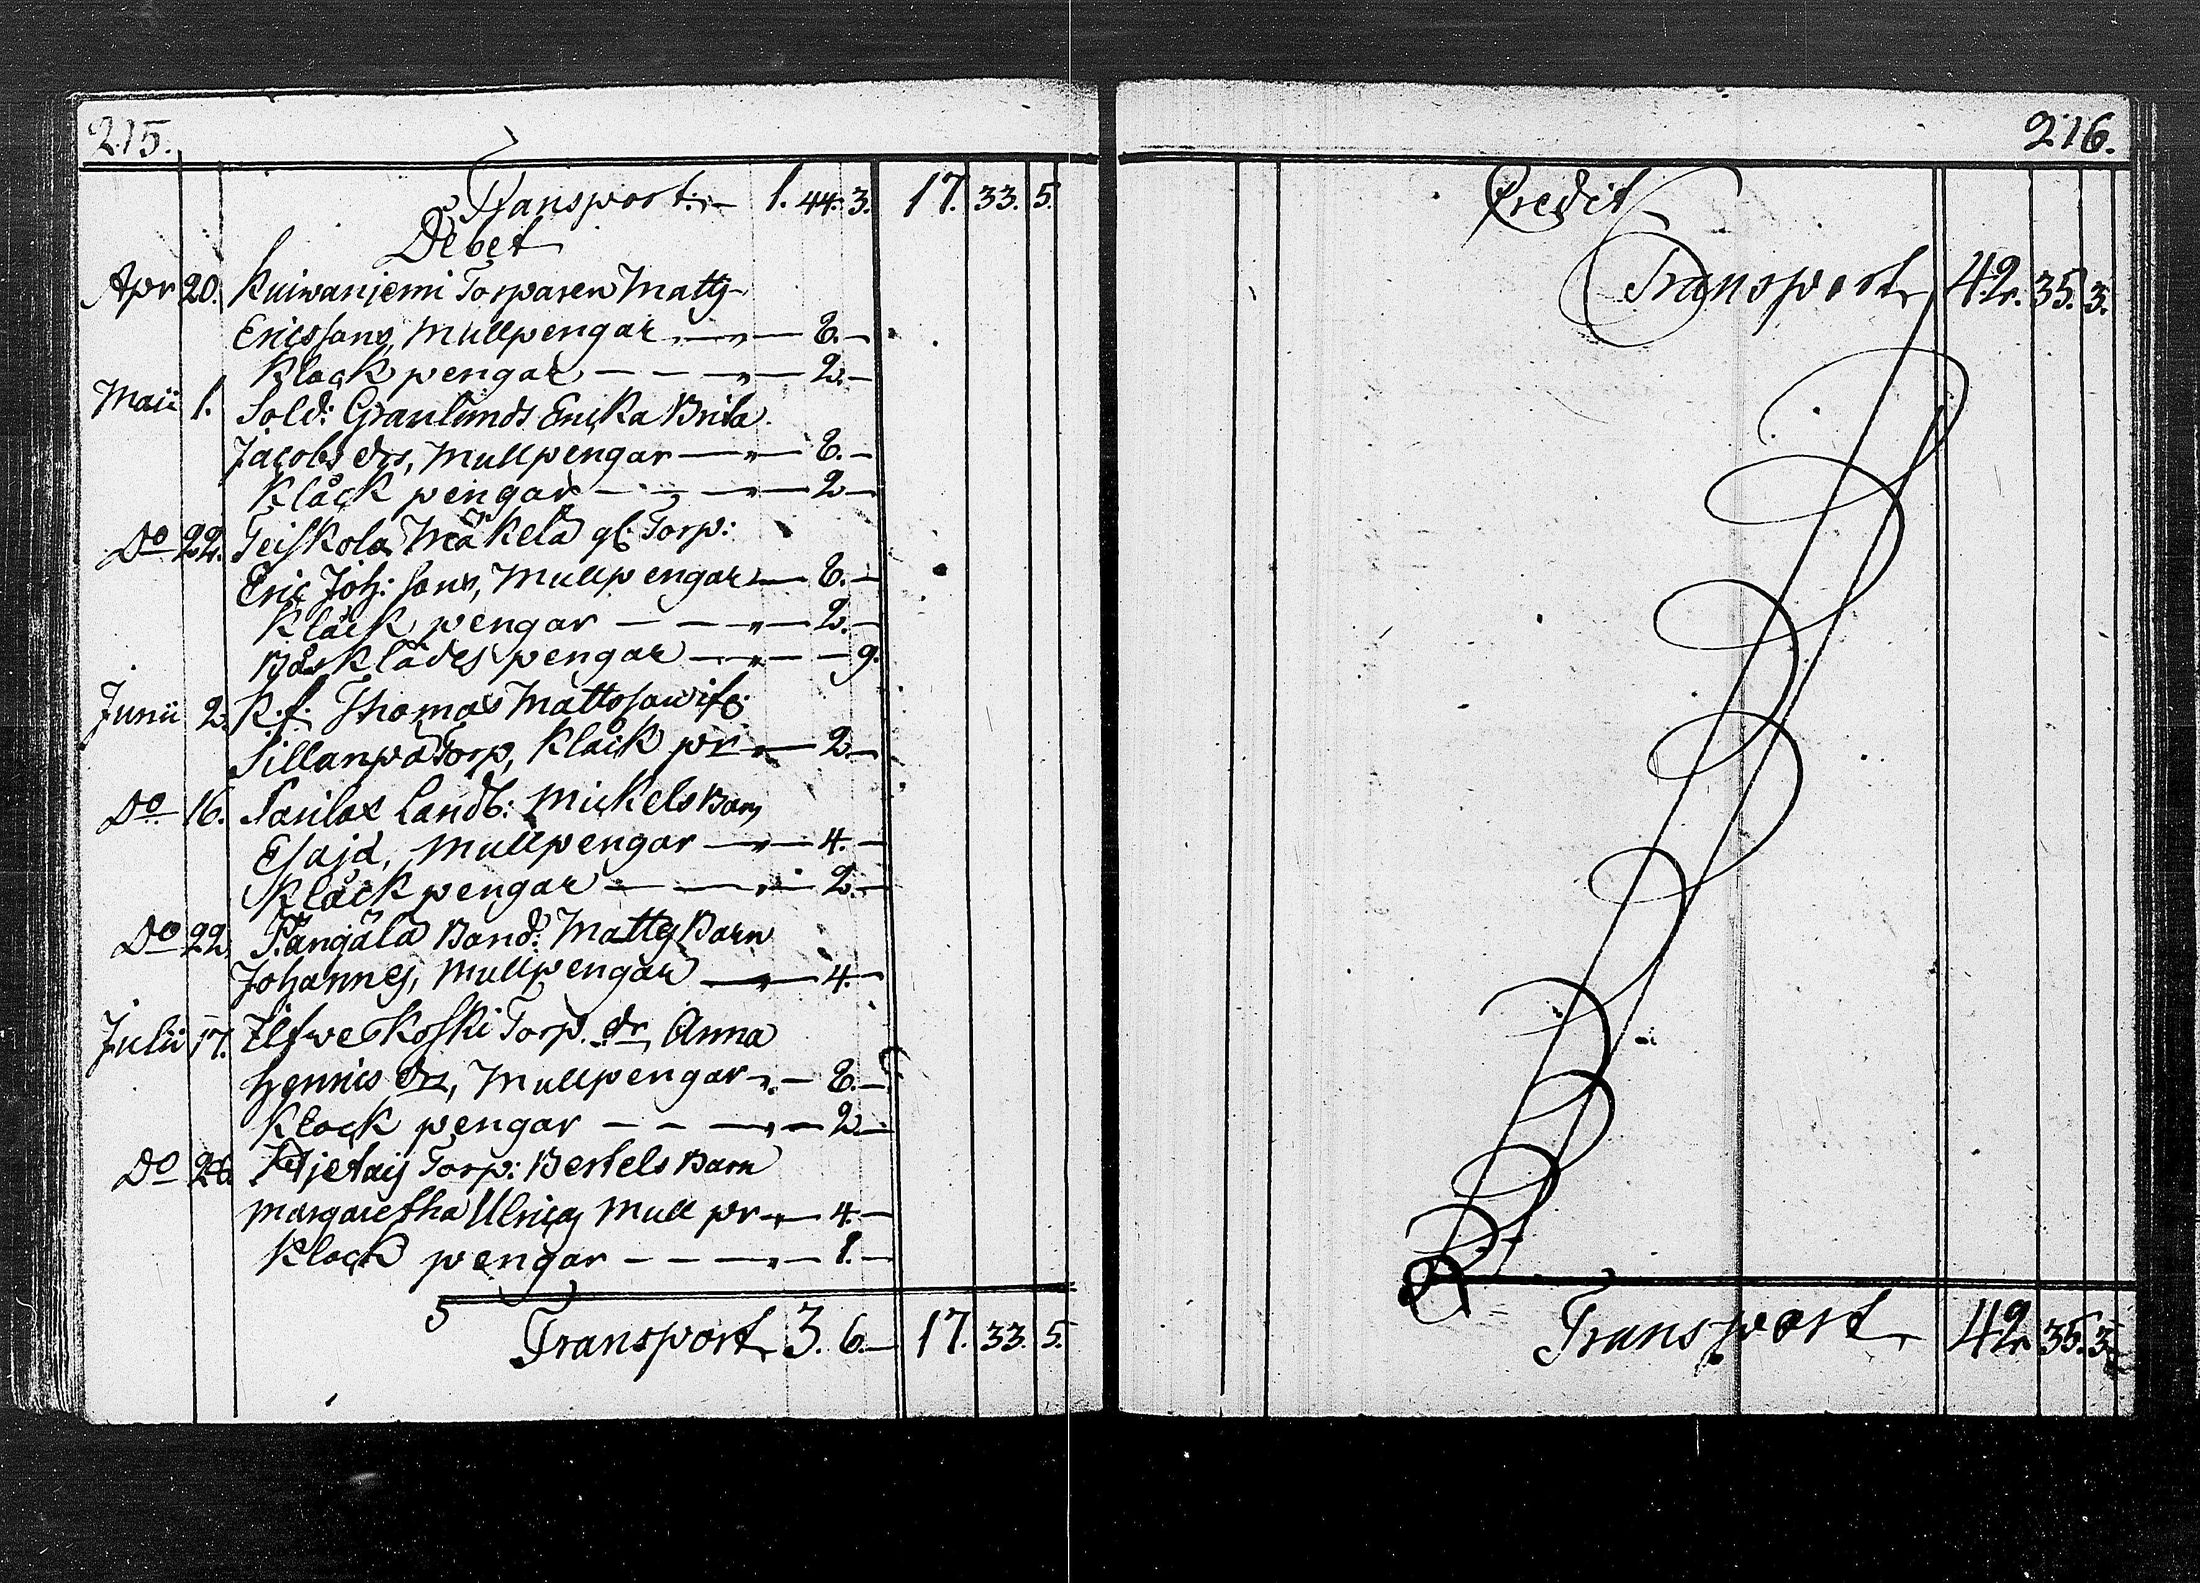 215.
Transport. 1. 44. 3. 17. 33. 5.
Debet
Apr 20. Kuiwaniemi Torparen Matts
Ericssons, Mullpengar — " — 8. —
Klock pengar — — " — 2. —
Maii 1. Sold: Granlunds Enka Brita
Jacobs dr, Mullpengar — " — 8. —
Klåck pengar — — " — 2 —
Do 22. Teiskola Mäkelä gl. Torp:
Eric Joh: sons, Mullpengar — 8. —
Klåck pengar — — " — 2. —
Bårklädes pengar — " — — 9.
Junii 2. R.f. Thomas Mattson
Sillanpä Torp, Klåck pr " — 2 —
Do 16. Landb: Mickels Barn
Esaja, Mullpengar — " — 4. —
Klåck pengar — — " — 2. —
Do 22. Pangälä Bond: Matts Barn
Johannes, Mullpengar — " — 4. —
Julii 17. Ilfweskoski Torp. dr Anna
Hennics dr, Mullpengar " — 8. —
Klock pengar — — " — 2 —
Do 26. Torp: Bertels Barn
Margaretha Ulrica, Mull pr " — 4. —
Klock pengar — — " — 1. —
Transport 3. 6. — 17. 33. 5.
216.
Credit
Transport 42. 35. 3.
Transport 42. 35. 3.